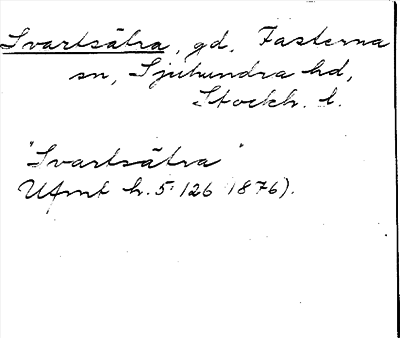 Svartsätra, gd, Fasterna
sn, Sjuhundra hd,
Stockh. l.
"Svartsätra"
UFmt h. 5:126 (1876).